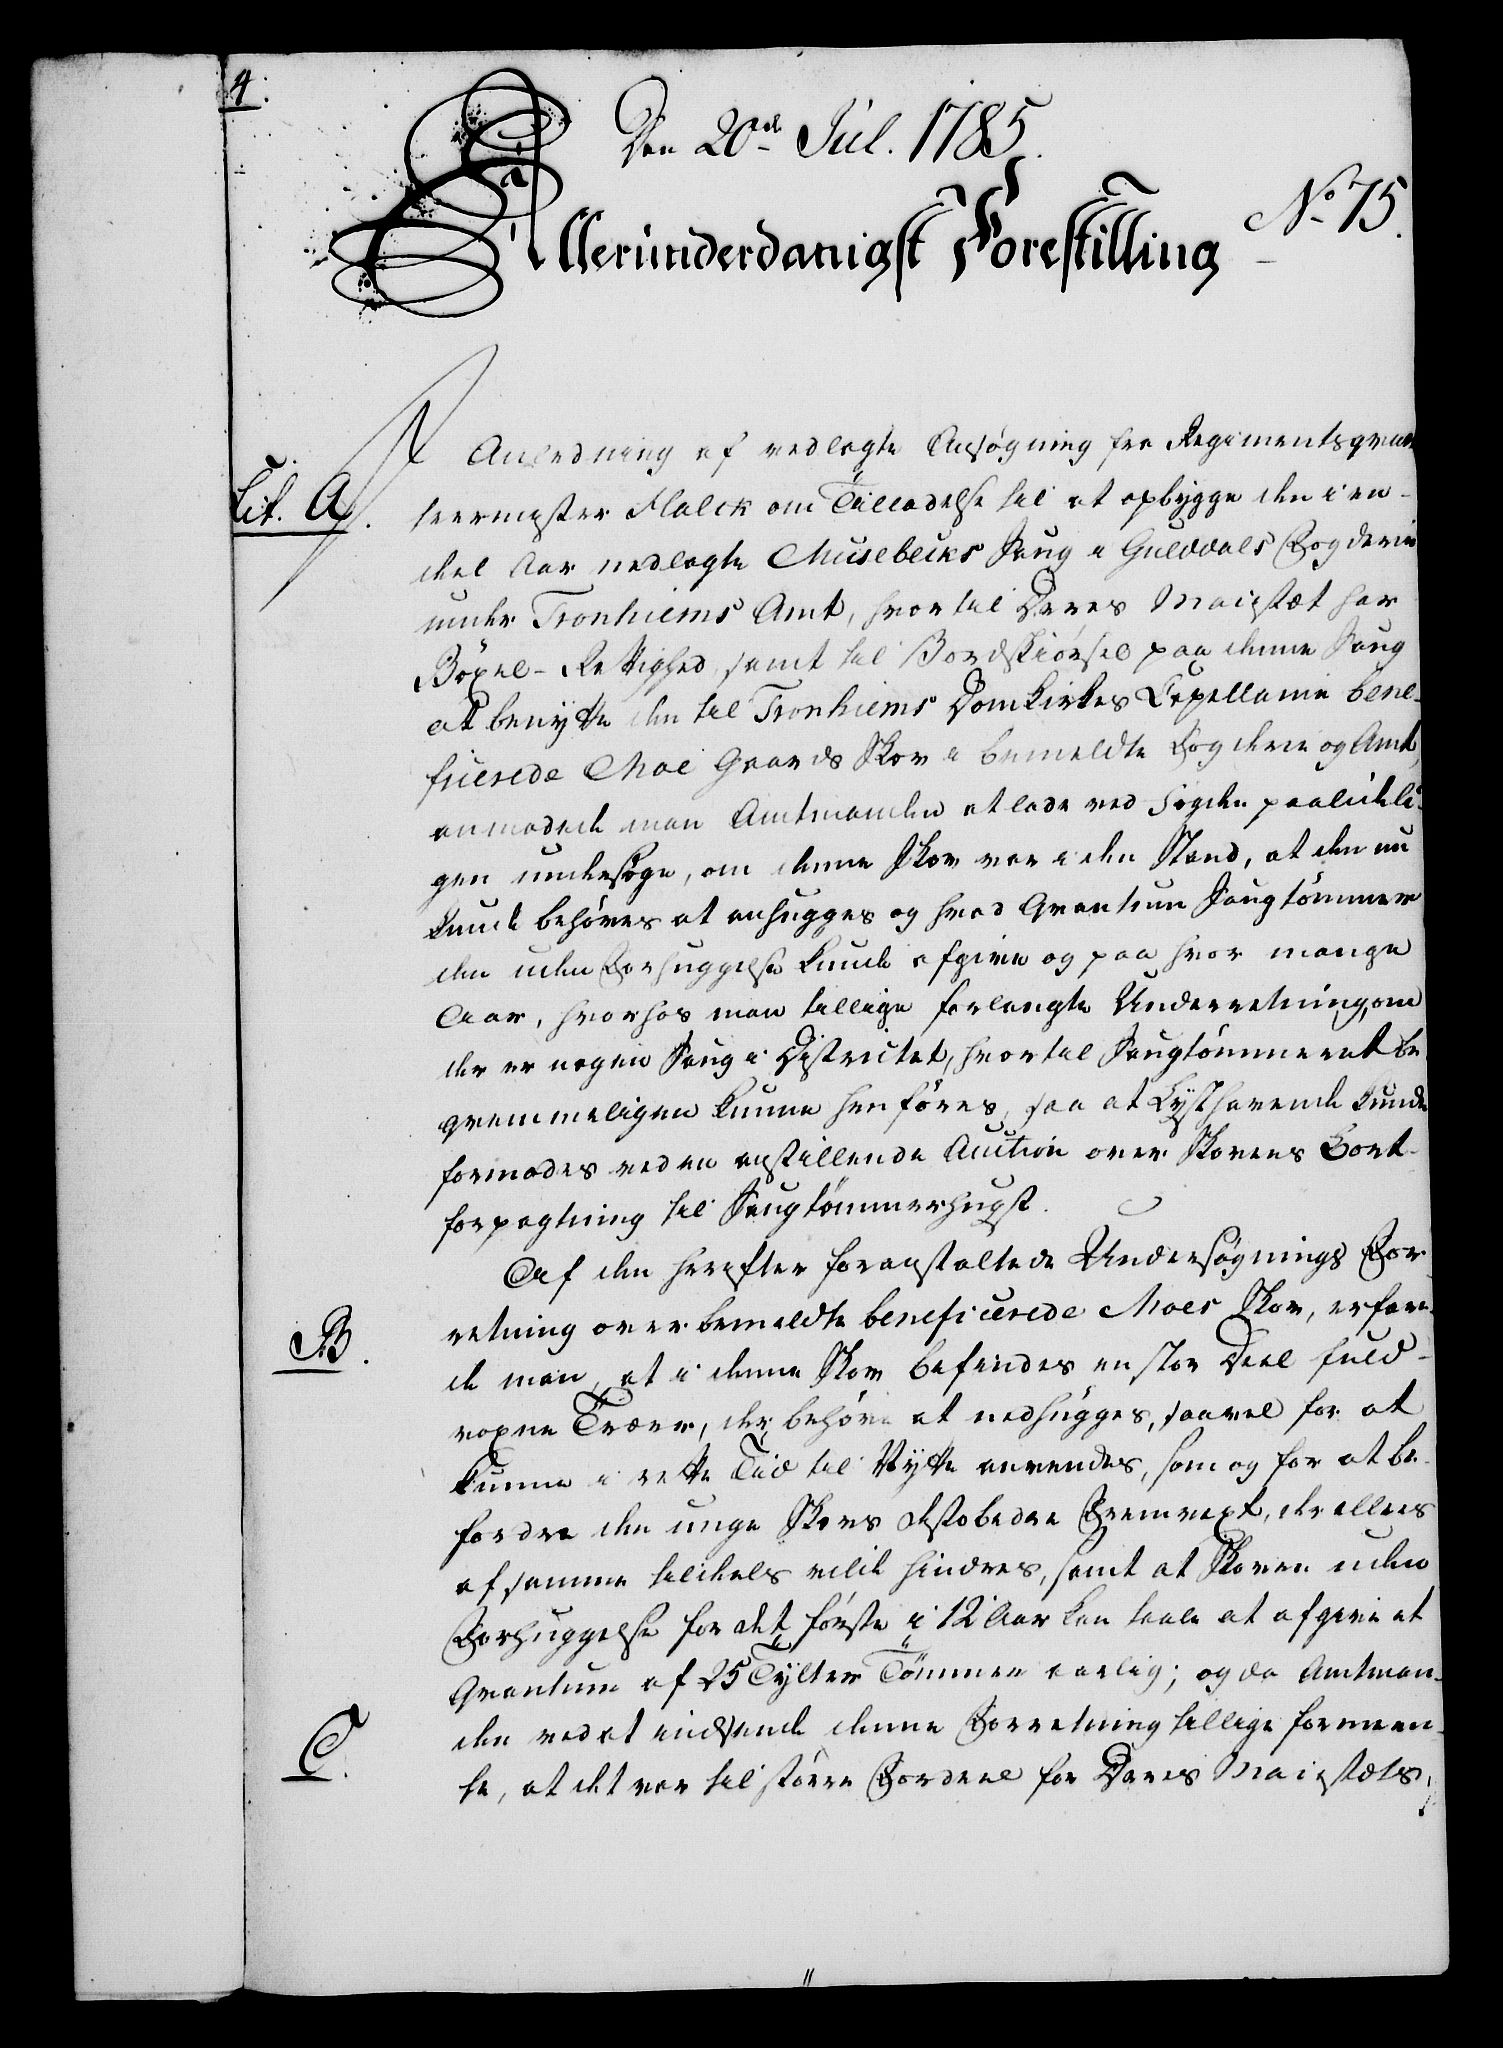 4.
Den 20de Jul. 1785.
No 75.
Allerunderdanigst Forestilling
I Anledning af vedlagte Ansøgning fra Regimentsqvar
Lit. A.
teermester Flalck om Tilladelse til at opbygge den i en-
deel Aar nedlagte Musebecks Saug i Guldals Fogderie
under Tronhiems Amt, hvortil Deres Maiestæt har
Böxel-Rettighed, samt til Bordskiörsel paa denne Saug
at benytte den til Tronhiems Domkirkes Capellanie bene-
ficerede Moe Gaards Skov i bemeldte Fogderie og Amt,
anmodede man Amtmanden at lade ved Fogden paalideli-
gen undersøge, om denne Skov var i den Stand, at den nu
kunde behöves at anhugges og hvad Qvantum Saugtömmer
den uden Forhuggelse kunde afgive og paa hvor mange
Aar, hvorhos man tillige forlangte Underretning, om
der er nogen Saug i Districtet, hvortil Saugtömmeret be-
qvemmeligen kunne henföres, saa at Lysthavende kunde
formodes ved en anstillende Auction over Skovens Bort-
forpagtning til Saugtömmerhugst.
Af den herefter foranstaltede Undersøgnings For-
B.
retning over bemeldte beneficerede Moes Skov, erfare-
de man, at i denne Skov befindes en stor Deel fuld-
voxne Træer, der behöve at nedhugges, saavel for at
kunne i rette Tiid til Nytte anvendes, som og for at be-
fordre den unge Skovs destobedre Fremvext, der ellers
af samme tildeels vilde hindres, samt at Skoven uden
Forhuggelse for det förste i 12 Aar kan taale at afgive et
Qvantum af 25 Tylter Tömmer aarlig; og da Amtman-
C.
den ved at indsende denne Forretning tillige formeen-
te, at det var til större Fordeel for Deres Maiestæts,